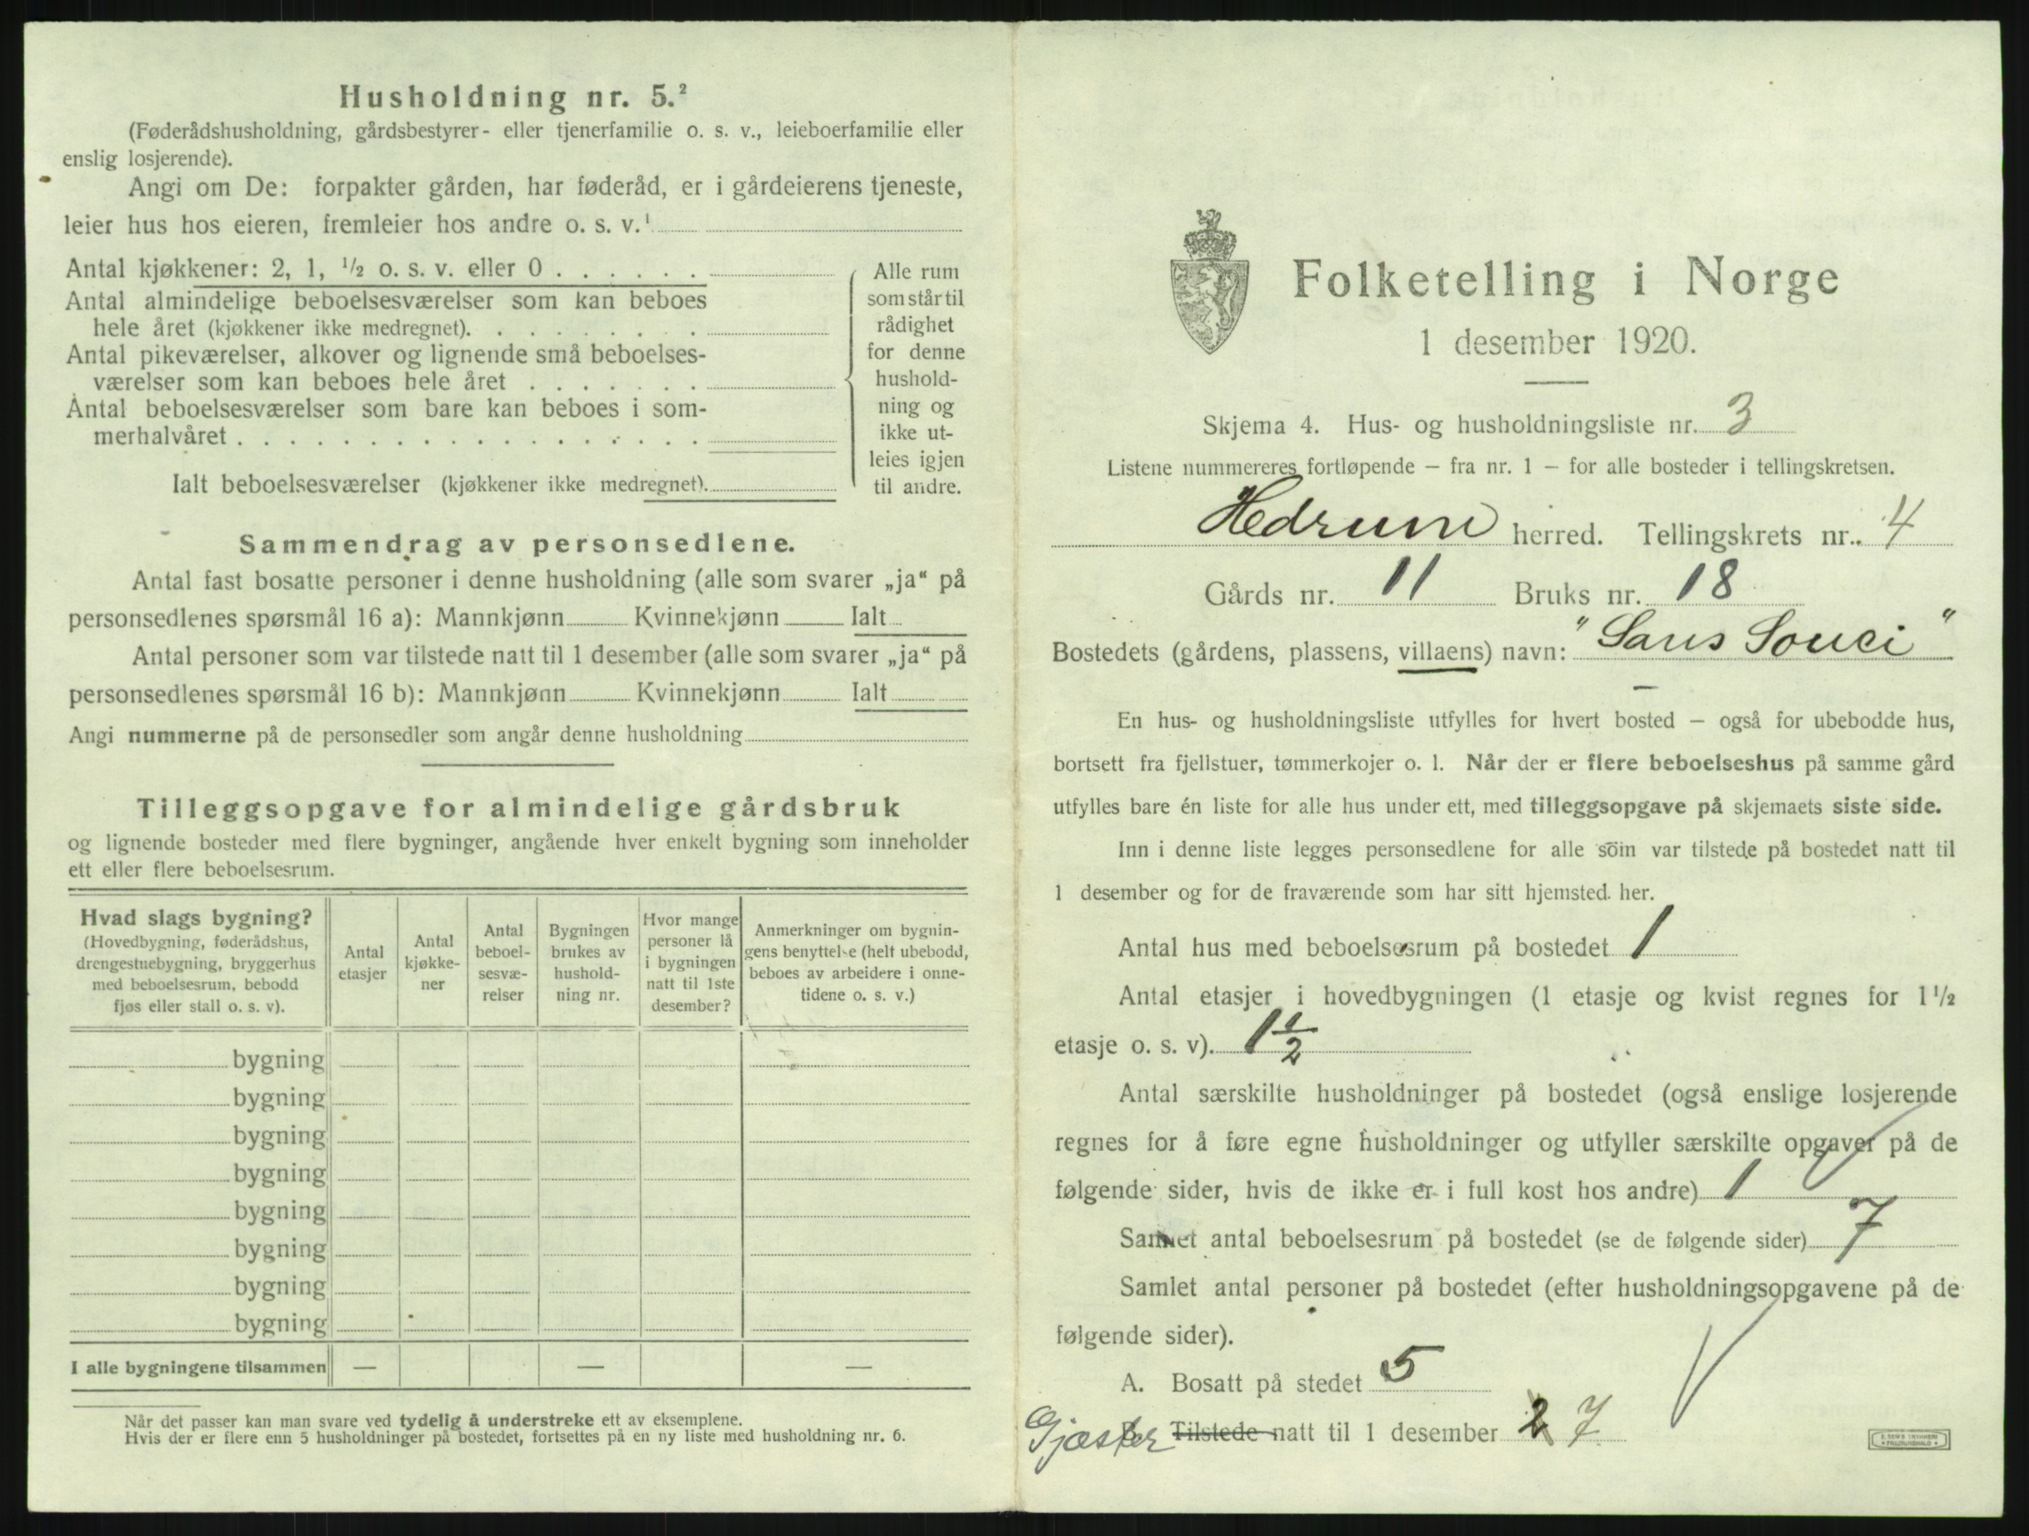 Husholdning nr. 5.²
(Føderådshusholdning, gårdsbestyrer- eller tjenerfamilie o. s. v., leieboerfamilie eller
enslig losjerende).
Angi om De: forpakter gården, har føderåd, er i gårdeierens tjeneste,
leier hus hos eieren, fremleier hos andre o. s. v.¹
Antal kjøkkener: 2, 1, ½ o. s. v. eller 0 . . . . . .
Antal almindelige beboelsesværelser som kan beboes
hele året (kjøkkener ikke medregnet). . . . . . . . .
Antal pikeværelser, alkover og lignende små beboelses-
værelser som kan beboes hele året . . . . . . .
Antal beboelsesværelser som bare kan beboes i som-
merhalvåret . . . . . . . . . . . . . . . . . .
Ialt beboelsesværelser (kjøkkener ikke medregnet).
Alle rum
som står til
rådighet
for denne
hushold-
ning og
ikke ut-
leies igjen
til andre.
Sammendrag av personsedlene.
Antal fast bosatte personer i denne husholdning (alle som svarer „ja“ på
personsedlenes spørsmål 16 a): Mannkjønn Kvinnekjønn Ialt
Antal personer som var tilstede natt til 1 desember (alle som svarer „ja“ på
personsedlenes spørsmål 16 b): Mannkjønn Kvinnekjønn Ialt
Angi nummerne på de personsedler som angår denne husholdning
Tilleggsopgave for almindelige gårdsbruk
og lignende bosteder med flere bygninger, angående hver enkelt bygning som inneholder
ett eller flere beboelsesrum.
Hvad slags bygning?
(Hovedbygning, føderådshus,
drengestuebygning, bryggerhus
med beboelsesrum, bebodd
fjøs eller stall o. s. v).
Antal
etasjer
Antal
kjøkke-
ner
Antal
beboel-
sesvæ-
relser
Bygningen
brukes av
hushold-
ning nr.
Hvor mange
personer lå
i bygningen
natt til 1ste
desember?
Anmerkninger om bygnin-
gens benyttelse (helt ubebodd,
beboes av arbeidere i onne-
tidene o. s. v.)
bygning
bygning
bygning
bygning
bygning
bygning
bygning
bygning
I alle bygningene tilsammen — — —
Når det passer kan man svare ved tydelig å understreke ett av eksemplene.
Hvis der er flere enn 5 husholdninger på bostedet, fortsettes på en ny liste med husholdning nr. 6.
Folketelling i Norge
1 desember 1920.
Skjema 4. Hus- og husholdningsliste nr. 3
Listene nummereres fortløpende — fra nr. 1 — for alle bosteder i tellingskretsen.
Hedrum herred. Tellingskrets nr. 4
Gårds nr. 11 Bruks nr. 18
Bostedets (gårdens, plassens, villaens) navn: "Sans Souci"
En hus- og husholdningsliste utfylles for hvert bosted — også for ubebodde hus,
bortsett fra fjellstuer, tømmerkojer o. l. Når der er flere beboelseshus på samme gård
utfylles bare én liste for alle hus under ett, med tilleggsopgave på skjemaets siste side.
Inn i denne liste legges personsedlene for alle som var tilstede på bostedet natt til
1 desember og for de fraværende som har sitt hjemsted her.
Antal hus med beboelsesrum på bostedet 1
Antal etasjer i hovedbygningen (1 etasje og kvist regnes for 1½
etasje o. s. v). 1½
Antal særskilte husholdninger på bostedet (også enslige losjerende
regnes for å føre egne husholdninger og utfyller særskilte opgaver på de
følgende sider, hvis de ikke er i full kost hos andre) 1
Samlet antal beboelsesrum på bostedet (se de følgende sider) 7
Samlet antal personer på bostedet (efter husholdningsopgavene på de
følgende sider).
A. Bosatt på stedet 5
Gjæster B. Tilstede natt til 1 desember 2 7